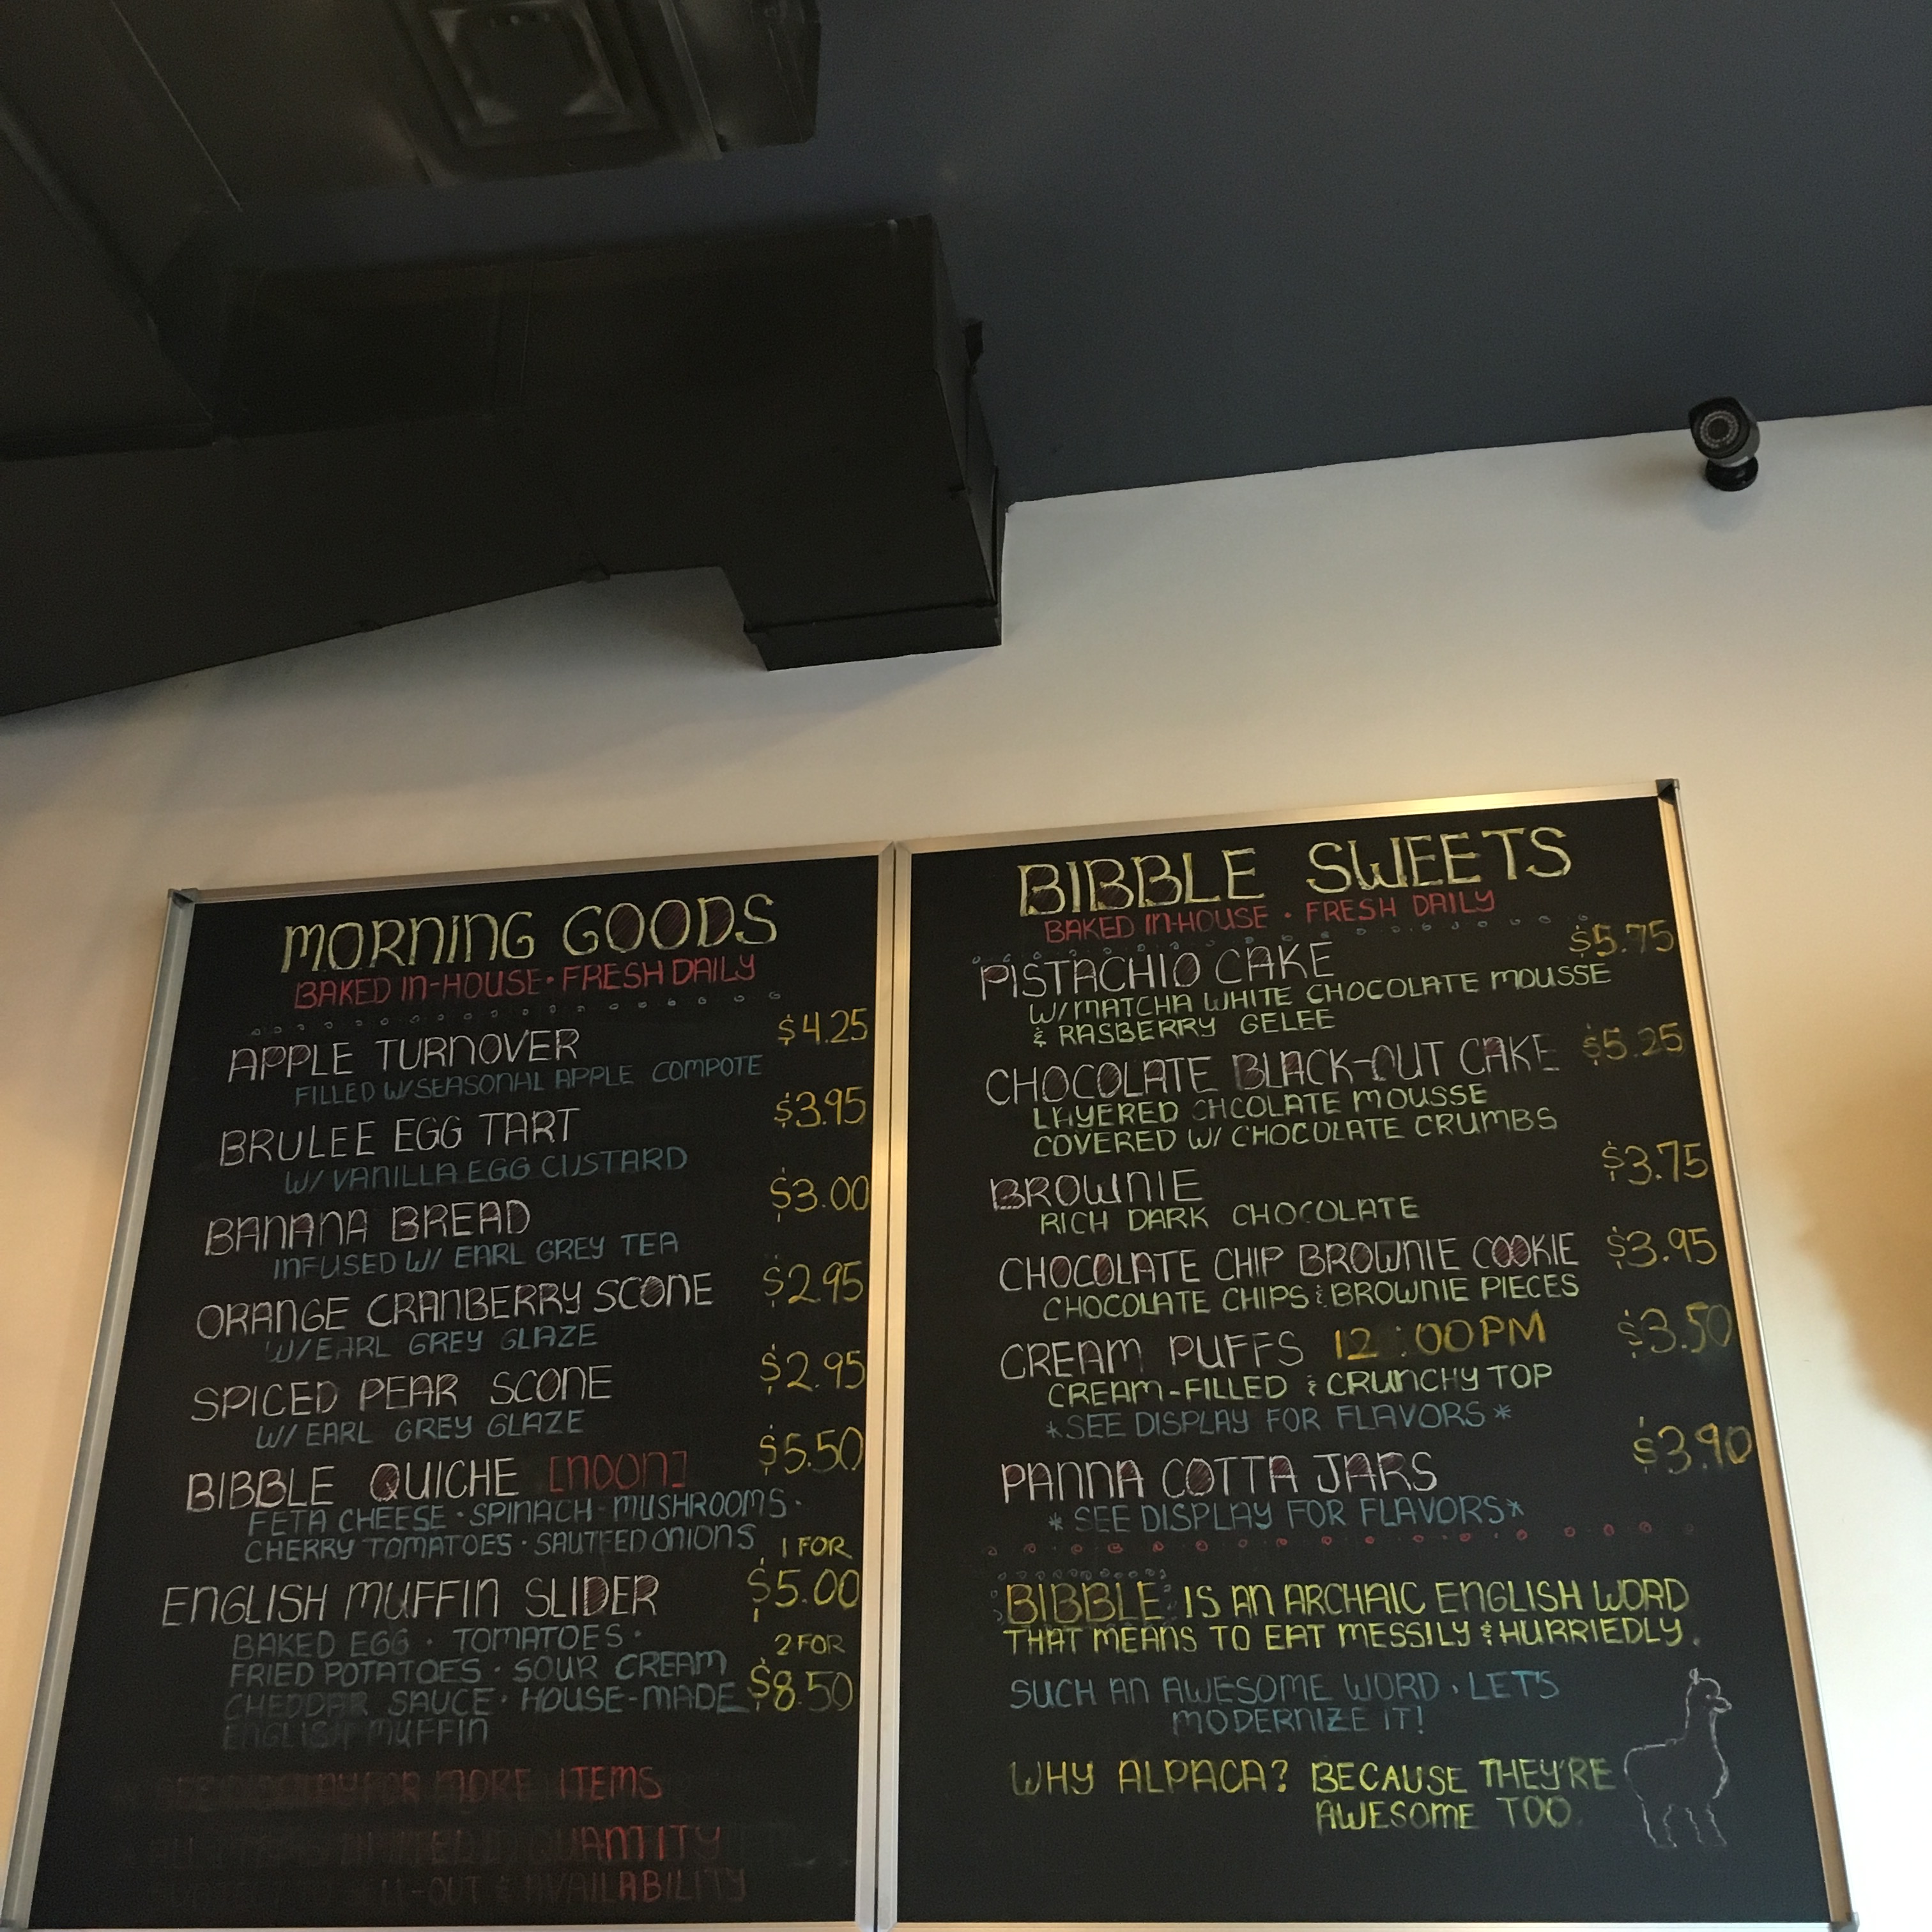 MORNING GOODS
BAKED IN-HOUSE • FRESH DAILY
APPLE TURNOVER $4.25
FILLED W/SEASONAL APPLE COMPOTE
BRULEE EGG TART $3.95
W/ VANILLA EGG CUSTARD
BANANA BREAD $3.00
INFUSED W/ EARL GREY TEA
ORANGE CRANBERRY SCONE $2.95
W/EARL GREY GLAZE
SPICED PEAR SCONE $2.95
W/ EARL GREY GLAZE
BIBBLE QUICHE [NOON] $5.50
FETA CHEESE • SPINACH • MUSHROOMS •
CHERRY TOMATOES • SAUTEED ONIONS
1 FOR
ENGLISH MUFFIN SLIDER $5.00
BAKED EGG • TOMATOES •
2 FOR
FRIED POTATOES • SOUR CREAM
CHEDDAR SAUCE • HOUSE-MADE $8.50
ENGLISH MUFFIN
FOR MORE ITEMS
QUANTITY
& AVAILABILITY
BIBBLE SWEETS
BAKED IN-HOUSE • FRESH DAILY
PISTACHIO CAKE $5.75
W/MATCHA WHITE CHOCOLATE MOUSSE
& RASBERRY GELEE
CHOCOLATE BLACK-OUT CAKE $5.25
LAYERED CHCOLATE MOUSSE
COVERED W/ CHOCOLATE CRUMBS
BROWNIE $3.75
RICH DARK CHOCOLATE
CHOCOLATE CHIP BROWNIE COOKIE $3.95
CHOCOLATE CHIPS & BROWNIE PIECES
CREAM PUFFS 12:00PM $3.50
CREAM-FILLED & CRUNCHY TOP
*SEE DISPLAY FOR FLAVORS*
PANNA COTTA JARS $3.90
*SEE DISPLAY FOR FLAVORS*
BIBBLE IS AN ARCHAIC ENGLISH WORD
THAT MEANS TO EAT MESSILY & HURRIEDLY.
SUCH AN AWESOME WORD. LET'S
MODERNIZE IT!
WHY ALPACA? BECAUSE THEY'RE
AWESOME TOO.